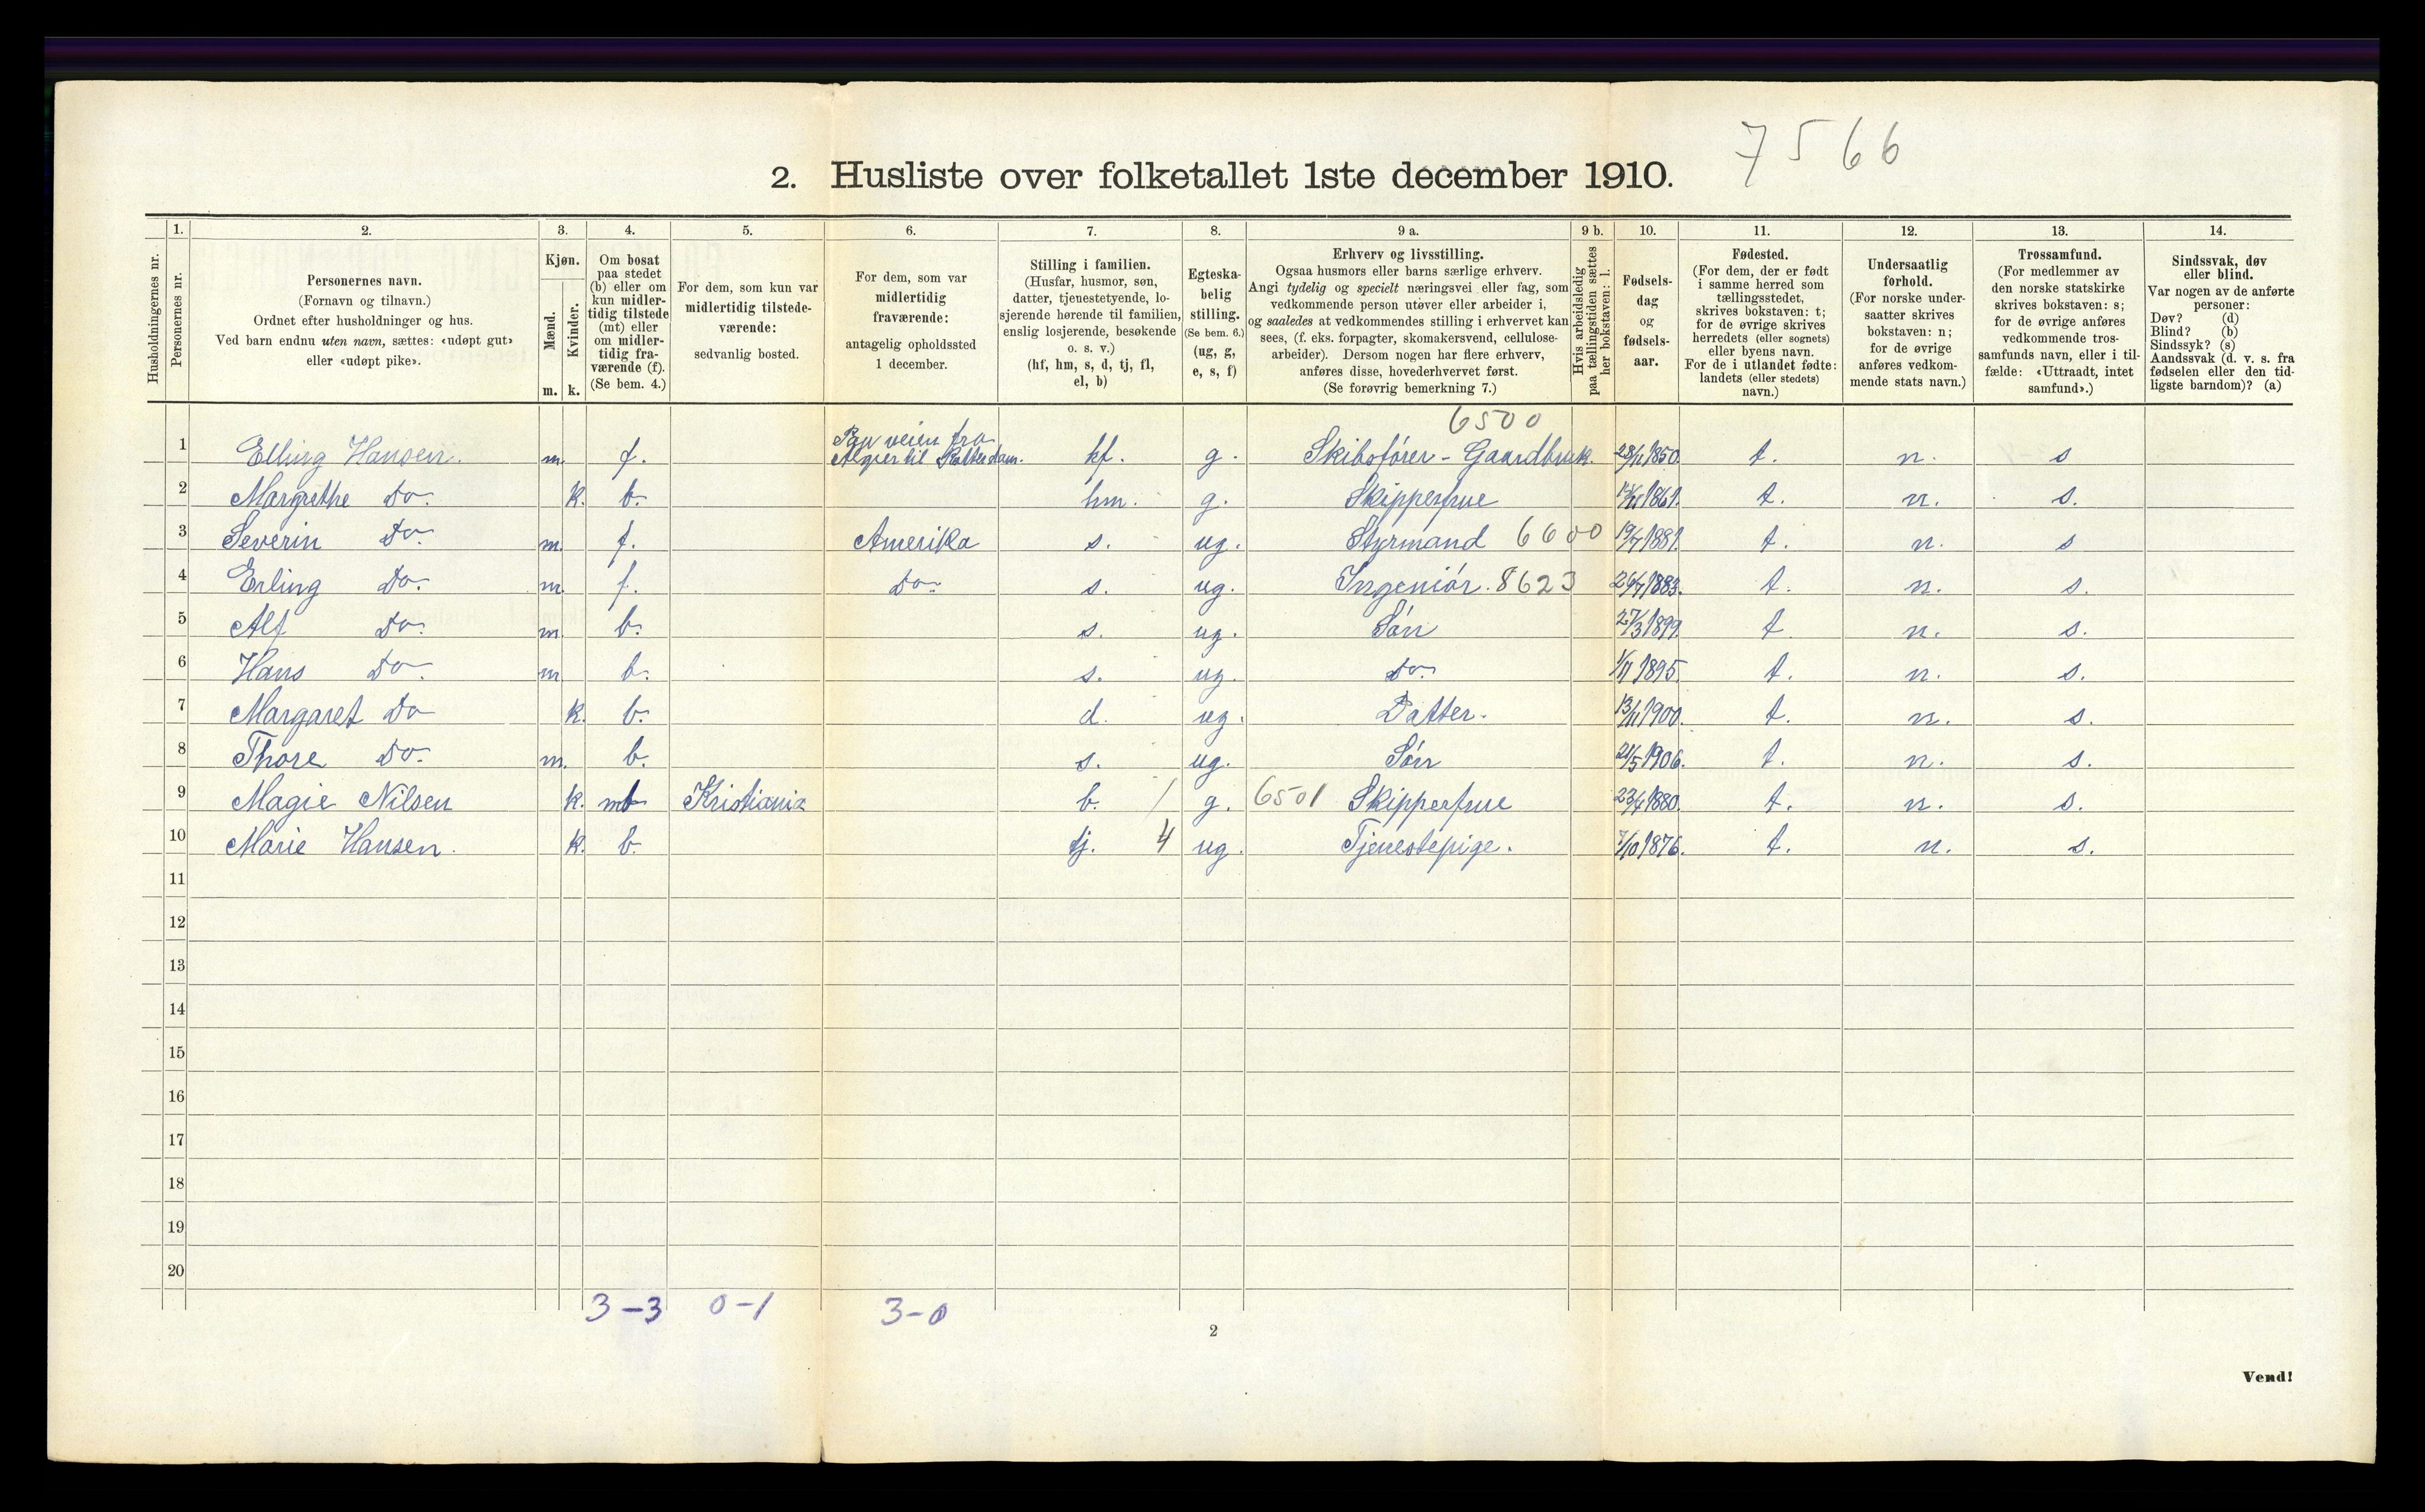 7566
2. Husliste over folketallet 1ste december 1910.
Husholdningernes nr.
1.
Personernes nr.
2.
Personernes navn.
(Fornavn og tilnavn.)
Ordnet efter husholdninger og hus.
Ved barn endnu uten navn, sættes: «udøpt gut»
eller «udøpt pike».
3.
Kjøn.
Mænd.
m.
Kvinder.
k.
4.
Om bosat
paa stedet
(b) eller om
kun midler-
tidig tilstede
(mt) eller
om midler-
tidig fra-
værende (f).
(Se bem. 4.)
5.
For dem, som kun var
midlertidig tilstede-
værende:
sedvanlig bosted.
6.
For dem, som var
midlertidig
fraværende:
antagelig opholdssted
1 december.
7.
Stilling i familien.
(Husfar, husmor, søn,
datter, tjenestetyende, lo-
sjerende hørende til familien,
enslig losjerende, besøkende
o. s. v.)
(hf, hm, s, d, tj, fl,
el, b)
8.
Egteska-
belig
stilling.
(Se bem. 6.)
(ug, g,
e, s, f)
9 a.
Erhverv og livsstilling.
Ogsaa husmors eller barns særlige erhverv.
Angi tydelig og specielt næringsvei eller fag, som
vedkommende person utøver eller arbeider i,
og saaledes at vedkommendes stilling i erhvervet kan
sees, (f. eks. forpagter, skomakersvend, cellulose-
arbeider). Dersom nogen har flere erhverv,
anføres disse, hovederhvervet først.
(Se forøvrig bemerkning 7.)
9 b.
Hvis arbeidsledig
paa tællingstiden sættes
her bokstaven: l.
10.
Fødsels-
dag
og
fødsels-
aar.
11.
Fødested.
(For dem, der er født
i samme herred som
tællingsstedet,
skrives bokstaven: t;
for de øvrige skrives
herredets (eller sognets)
eller byens navn.
For de i utlandet fødte:
landets (eller stedets)
navn.)
12.
Undersaatlig
forhold.
(For norske under-
saatter skrives
bokstaven: n;
for de øvrige
anføres vedkom-
mende stats navn.)
13.
Trossamfund.
(For medlemmer av
den norske statskirke
skrives bokstaven: s;
for de øvrige anføres
vedkommende tros-
samfunds navn, eller i til-
fælde: «Uttraadt, intet
samfund».)
14.
Sindssvak, døv
eller blind.
Var nogen av de anførte
personer:
Døv? (d)
Blind? (b)
Sindssyk? (s)
Aandssvak (d. v. s. fra
fødselen eller den tid-
ligste barndom)? (a)
6500
1 Elling Hansen. m. f. Paa veien fra Algier til Rotterdam. hf. g. Skibsfører - Gaardbruk. 28/11 1850. t. n. s
2 Margrethe Do. k. b. hm. g. Skipperfrue 1861. t. n. s.
3 Severin Do. m. f. Amerika s. ug. Styrmand 6600 19/7 1881. t. n. s
4 Erling Do. m. f. Do. s. ug. Ingeniör. 8623 26/7 1883. t. n. s.
5 Alf Do. m. b. s. ug. Sön 27/3 1899. t. n. s.
6 Hans Do. m b. s. ug. Do. 1/11 1895. t. n. s.
7 Margaret Do k. b. d. ug. Datter. 13/11 1900. t. n. s.
8 Thore Do. m. b. s. ug. Sön 21/5 1906. t. n. s.
9 Magie Nilsen k. mt Kristiania b. / g. 6501 Skipperfrue 23/4 1880. t. n. s.
10 Marie Hansen. k. b. tj. 4 ug. Tjenestepige. 7/10 1876. t. n. s.
11
12
13
14
15
16
17
18
19
20
3-3 0-1 3-0
2
Vend!